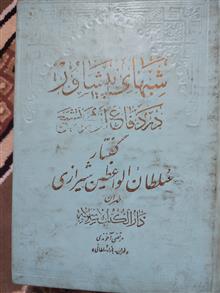 شبهای پیشاور
در دفاع از حریم تشیع
گفتار
سلطان الواعظین شیرازی
طهران
دار الکتب الاسلامیه
مرتضی آخوندی